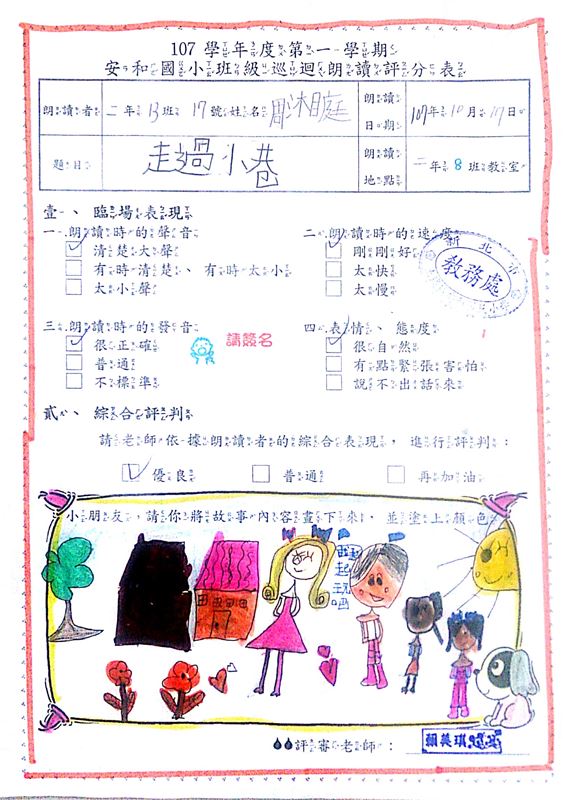 107 學年度第一學期
安和國小班級巡迴朗讀評分表
朗讀者 二年13班 17號 姓名 沐庭 朗讀日期 107年10月17日
題目 走過小巷 朗讀地點 二年8班教室
壹、臨場表現
一、朗讀時的聲音
清楚大聲
有時清楚、有時太小
太小聲
二、朗讀時的速度
剛剛好
太快
太慢
新北市
教務處
三、朗讀時的發音
很正確
普通
不標準
請簽名
四、表情、態度
很自然
有點緊張害怕
說不出話來
貳、綜合評判
請老師依據朗讀者的綜合表現，進行評判：
優良 普通 再加油
小朋友，請你將故事內容畫下來，並塗上顏色
一起玩吧
評審老師：賴美琪